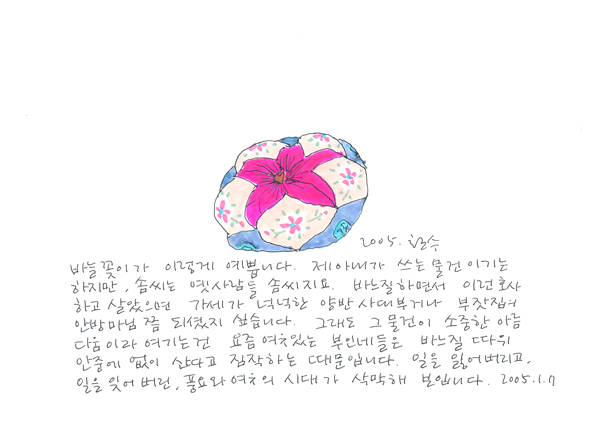 2005. 철수
바늘꽂이가 이렇게 예쁩니다. 제 아내가 쓰는 물건이기는
하지만, 솜씨는 옛사람들 솜씨지요. 바느질하면서 이런 호사
하고 살았으면 가세가 넉넉한 양반 사대부거나 부잣집에
안방마님 쯤 되셨지 싶습니다. 그래도 그 물건이 소중한 아름
다움이라 여기는건 요즘 여유있는 부인네들은 바느질 따위
안중에 없이 산다고 짐작하는 때문입니다. 일을 잃어버리고,
일을 잊어버린, 풍요와 여유의 시대가 삭막해 보입니다. 2005.1.7